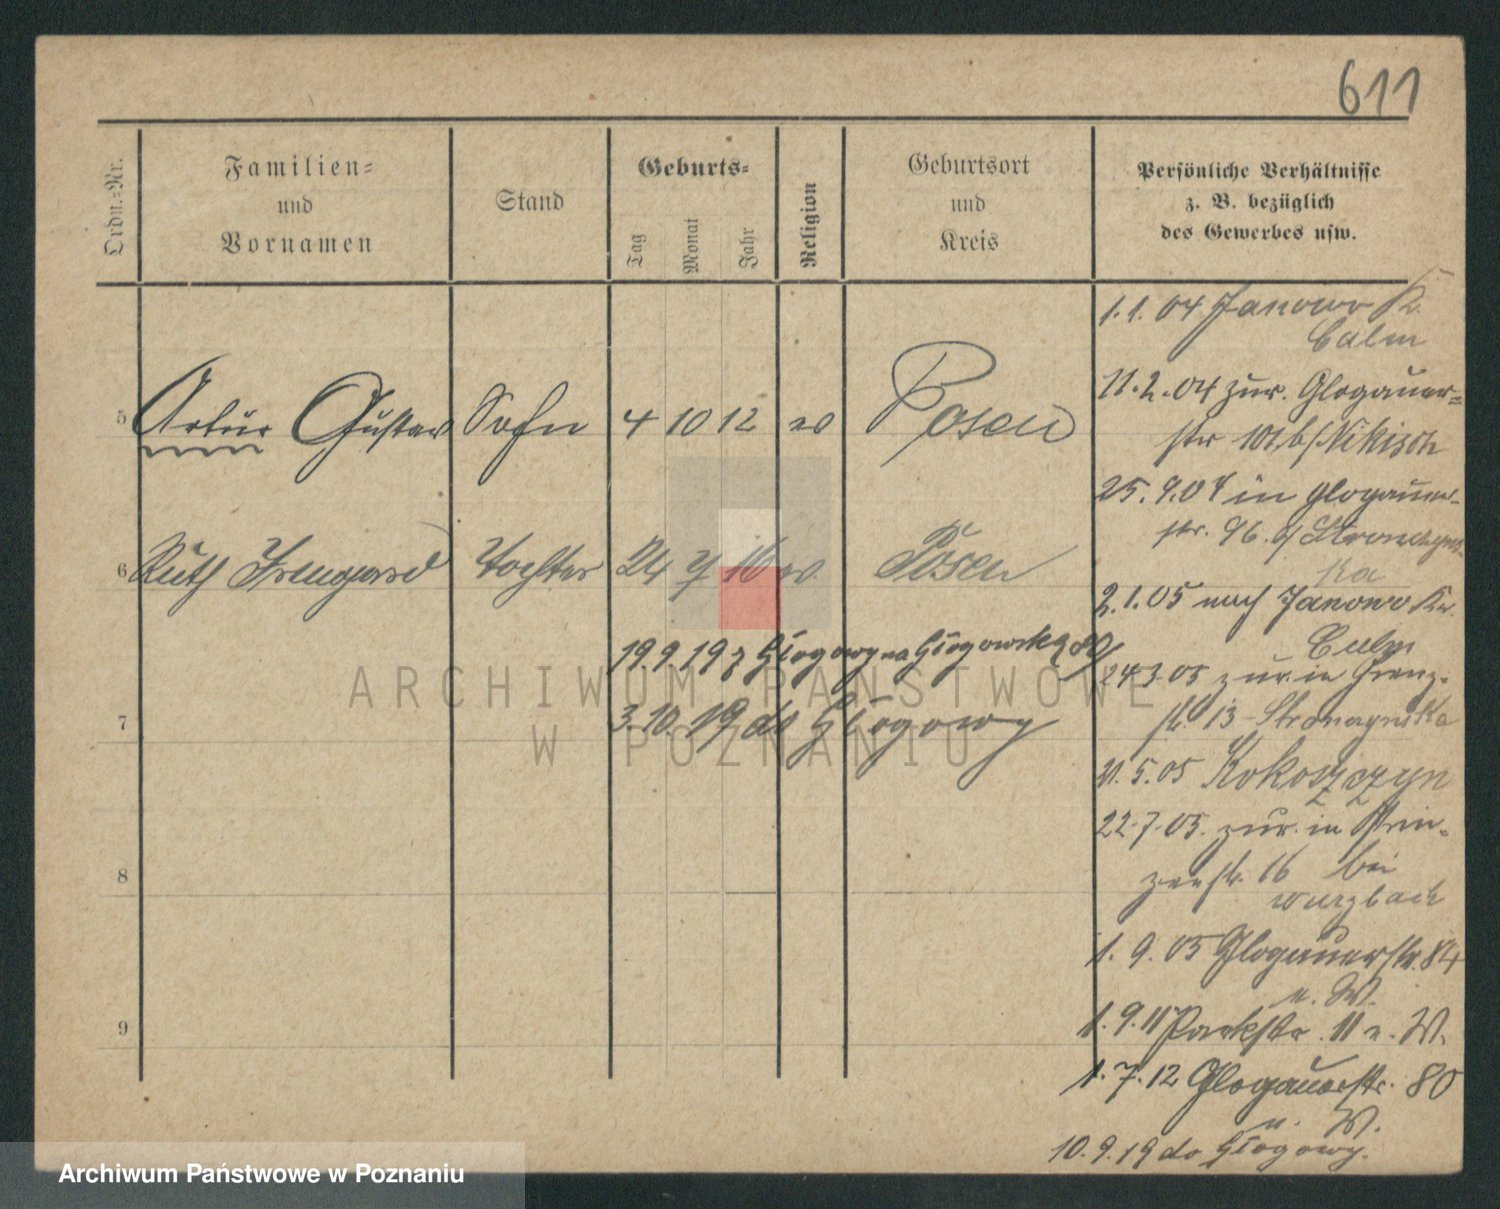 611
Ordn.-Nr.
Familien-
und
Vornamen
Stand
Geburts-
Tag
Monat
Jahr
Religion
Geburtsort
und
Kreis
Persönliche Verhältnisse
z. B. bezüglich
des Gewerbes usw.
5 Artur Gustav Sohn 4 10 12 ev Posen
6 Ruth Irmgard Tochter 24 7 16 ev. Posen
19.9.19 z Głogowy na Głogowska 80
7
3.10.19 do Głogowy
8
9
1.1.04 Janowo K.
Culm
11.2.04 zur. Glogauer-
str 101, b/ Nikisch
25.9.04 in Glogauer-
str. 96. b/
ka
2.1.05 nach Janowo Kr.
Culm
24.3.05 zur. in Grenz-
str. 13
21.5.05 Kokoszczyn
22.7.05. zur. in Prin-
zenstr. 16 bei
Wurzbach
1.9.05 Glogauerstr. 84
e. W.
1.9.11 Parkstr. 11 e. W.
1.7.12 Glogauerstr. 80
e. W.
10.9.19 do Głogowy.
ARCHIWUM PAŃSTWOWE
W POZNANIU
Archiwum Państwowe w Poznaniu